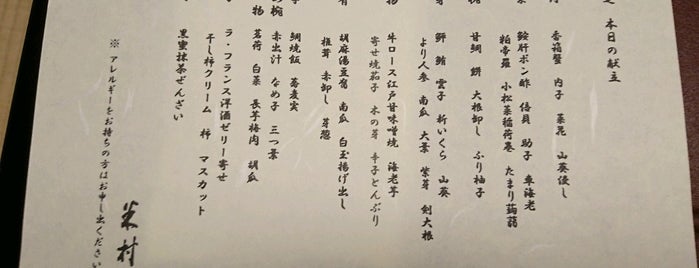 本日の献立
香箱蟹 内子 菜花 山葵優し
鮟肝ポン酢 倍貝 助子 車海老
粕帝羅 小松菜稲荷巻 たまり蒟蒻
甘鯛 餅 大根卸し ふり柚子
鮃 鮪 雲子 折いくら 山葵
より人参 南瓜 大葉 紫芽 剣大根
牛ロース江戸甘味噌焼 海老芋
寄せ焼茄子 木の芽 辛子とんぶり
胡麻湯豆腐 南瓜 白玉揚げ出し
椎茸 赤卸し 芽葱
鯛焼飯 蕎麦実
の椀 赤出汁 なめ子 三つ葉
物 茗荷 白菜 長芋梅肉 胡瓜
ラ・フランス洋酒ゼリー寄せ
干し柿クリーム 柿 マスカット
黒蜜抹茶ぜんざい
※ アレルギーをお持ちの方はお申し出ください
米村